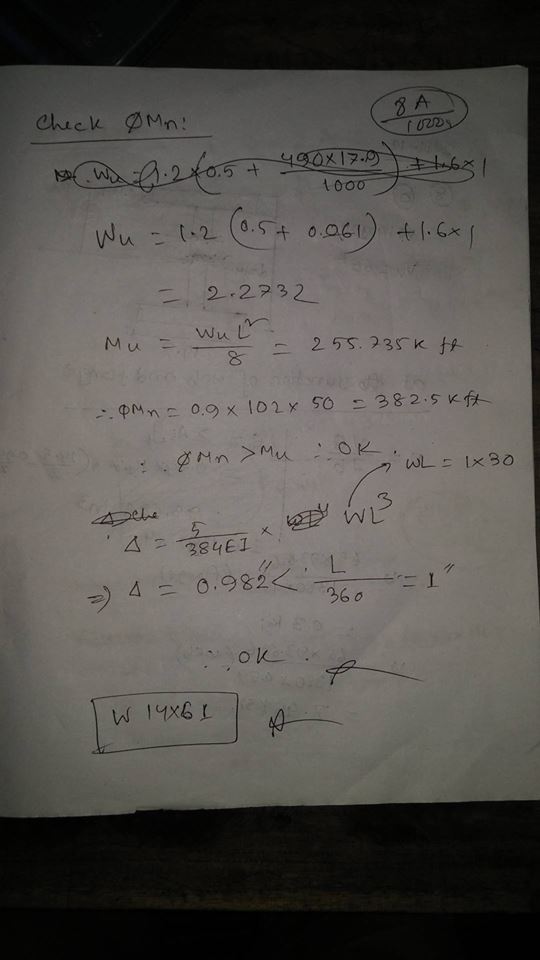 Check ØMn:
8A/1000
Wu = 1.2 × (0.5 + 490×17.9/1000) + 1.6×1
Wu = 1.2 (0.5 + 0.061) + 1.6×1
= 2.2732
Mu = WuL²/8 = 255.735 K ft
∴ ØMn = 0.9 × 102 × 50 = 382.5 K ft
∴ ØMn > Mu ∴ OK.
WL = 1×30
Δ = 5/384EI × WL³
⇒ Δ = 0.982" < L/360 = 1"
∴ OK.
W 14×61